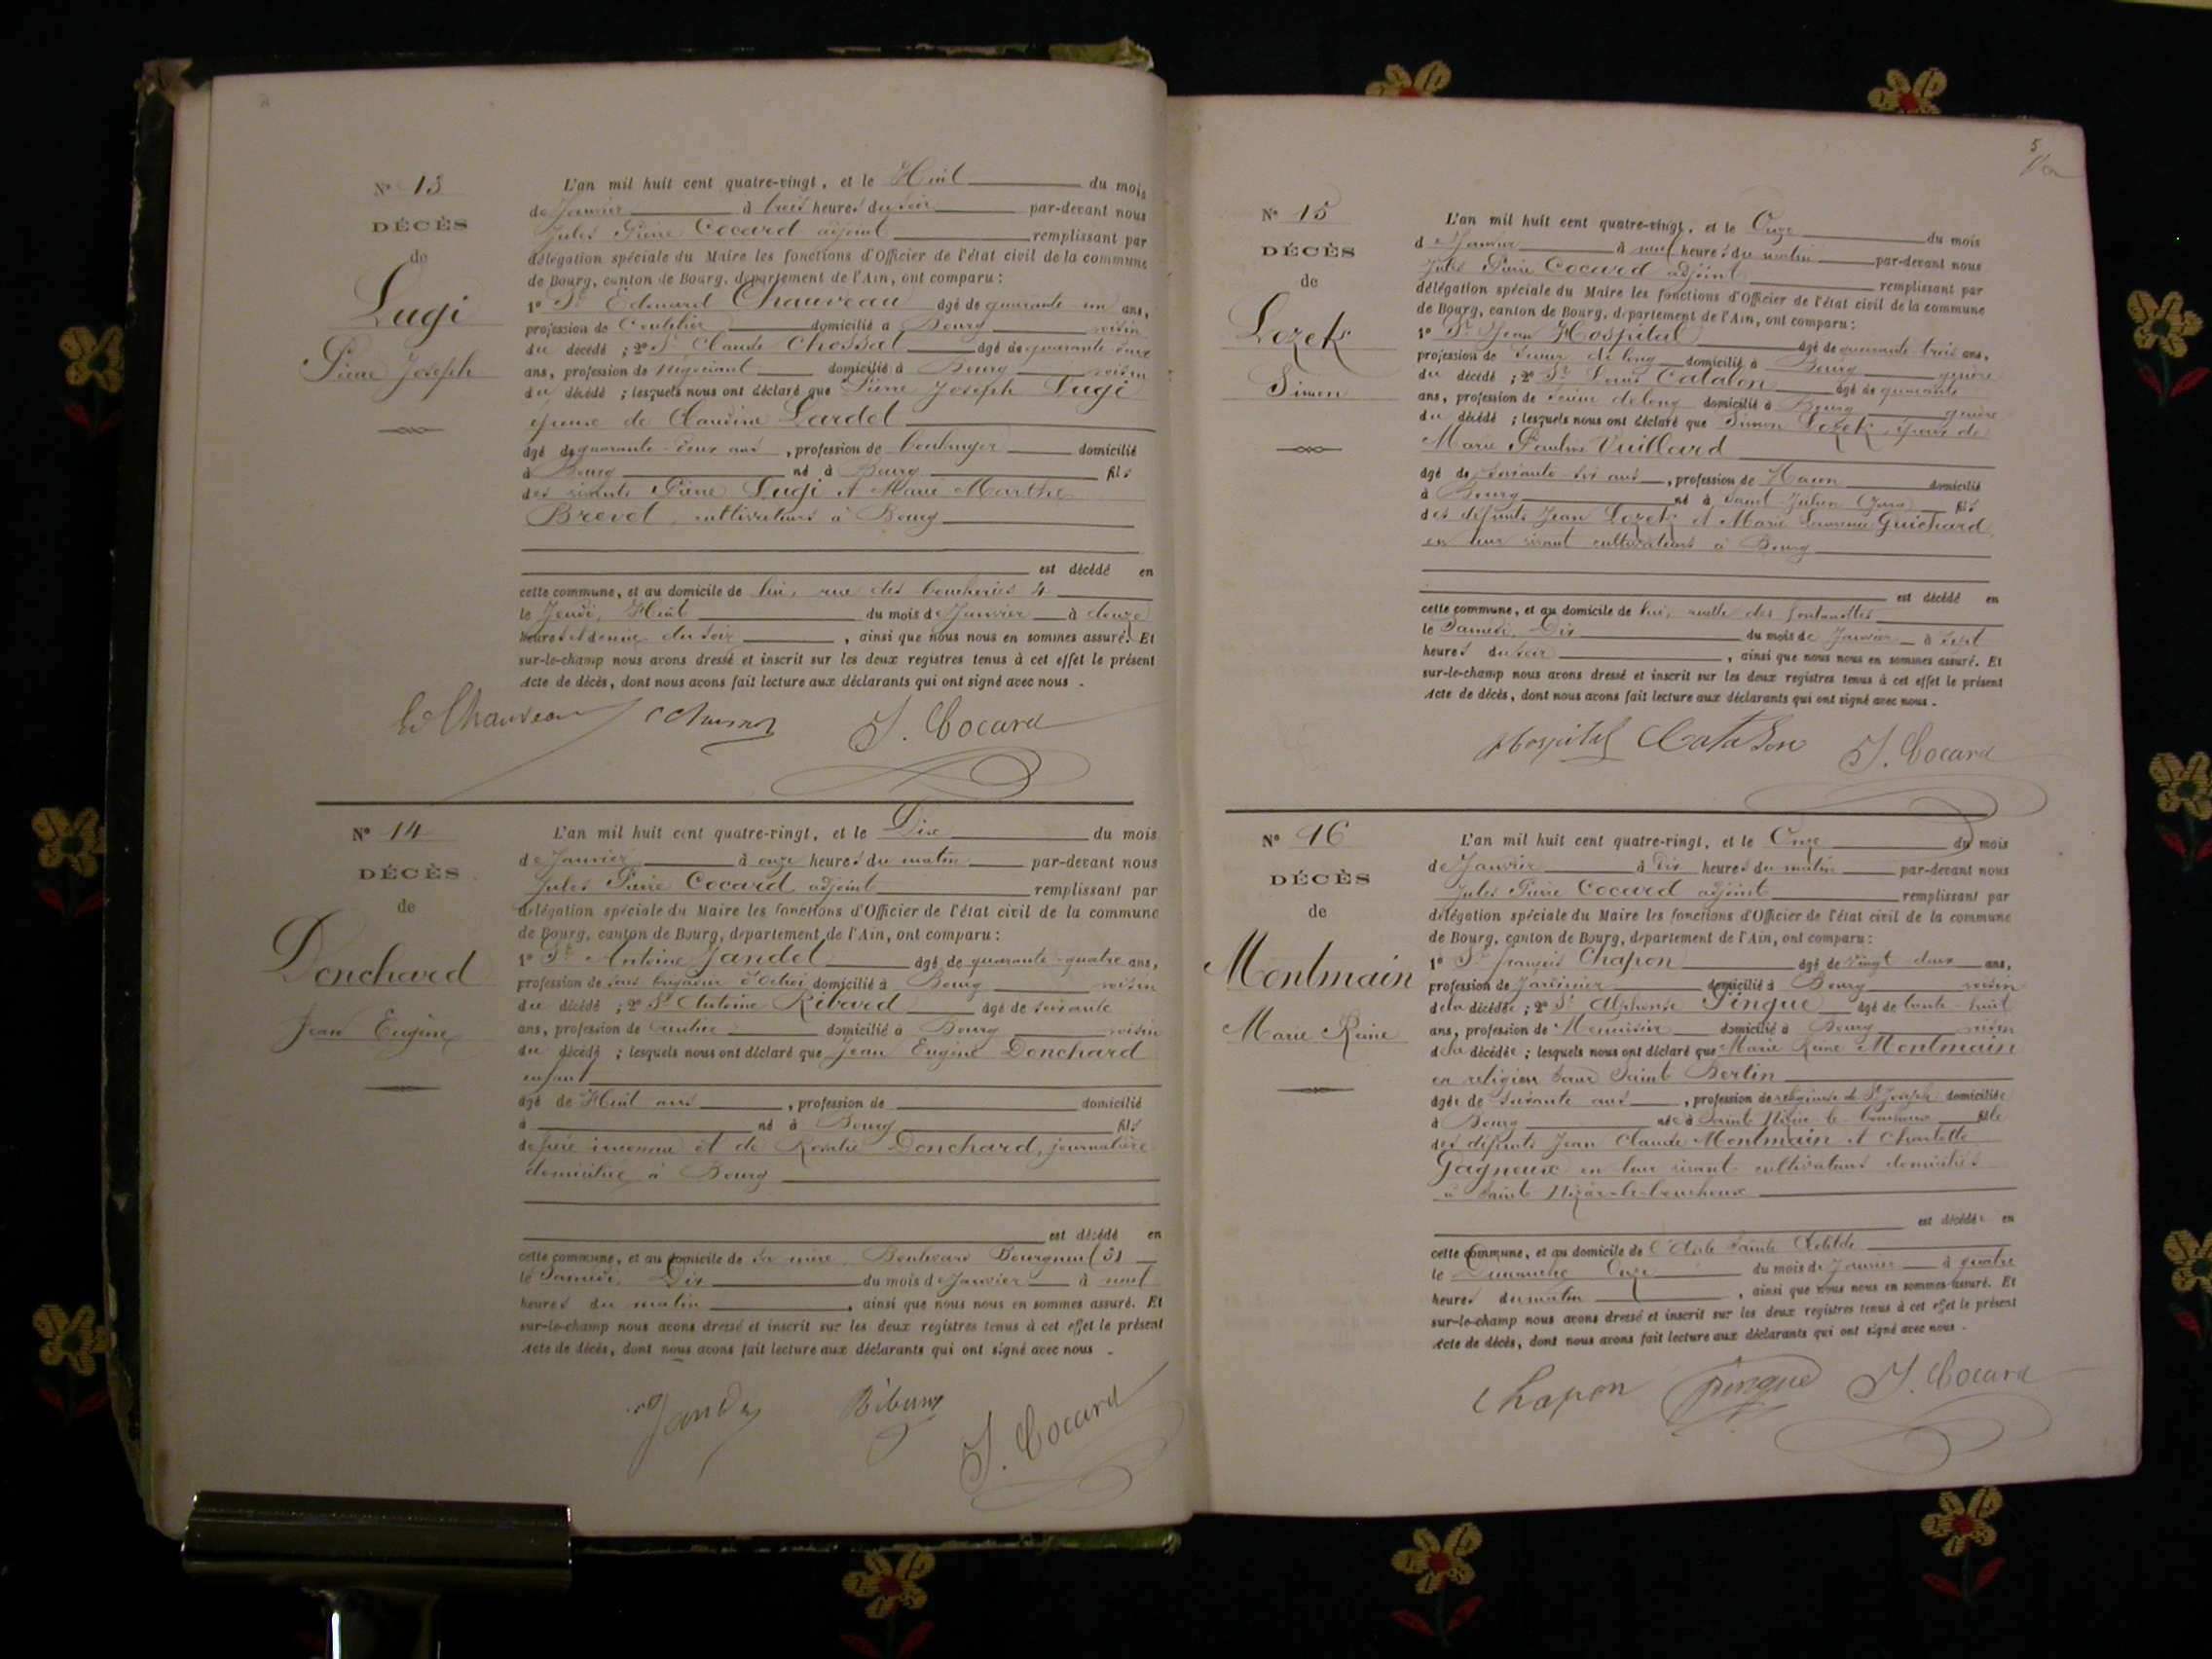 N° 13
DÉCÈS
de
Lugi
Pierre Joseph
L'an mil huit cent quatre-vingt, et le Huit du mois
de Janvier à trois heures du soir par-devant nous
Jules Pierre Cocard adjoint remplissant par
délégation spéciale du Maire les fonctions d'Officier de l'état civil de la commune
de Bourg, canton de Bourg, département de l'Ain, ont comparu :
1° Sr Edouard Chauveau âgé de quarante un ans,
profession de domicilié à Bourg voisin
du décédé ; 2° Sr Claude Chossat âgé de quarante deux
ans, profession de négociant domicilié à Bourg voisin
du décédé ; lesquels nous ont déclaré que Pierre Joseph Lugi
époux de Claudine Lardet
âgé de quarante-deux ans, profession de boulanger domicilié
à Bourg né à Bourg fils
des vivants Pierre Lugi et Marie Marthe
Brevet, cultivateurs à Bourg
est décédé en
cette commune, et au domicile de lui, rue des boucheries 4
le Jeudi, Huit du mois de Janvier à douze
heures et demie du soir, ainsi que nous nous en sommes assuré. Et
sur-le-champ nous avons dressé et inscrit sur les deux registres tenus à cet effet le présent
Acte de décès, dont nous avons fait lecture aux déclarants qui ont signé avec nous.
Ed Chauveau J. Cocard
N° 14
DÉCÈS
de
Donchard
Jean Eugène
L'an mil huit cent quatre-vingt, et le Dix du mois
de Janvier à onze heures du matin par-devant nous
Jules Pierre Cocard adjoint remplissant par
délégation spéciale du Maire les fonctions d'Officier de l'état civil de la commune
de Bourg, canton de Bourg, département de l'Ain, ont comparu :
1° Sr Antoine Jandet âgé de quarante-quatre ans,
profession de sous brigadier d'octroi domicilié à Bourg voisin
du décédé ; 2° Sr Antoine Ribard âgé de soixante
ans, profession de rentier domicilié à Bourg voisin
du décédé ; lesquels nous ont déclaré que Jean Eugène Donchard
enfant
âgé de Huit ans, profession de domicilié
à né à Bourg fils
de père inconnu et de Rosalie Donchard, journalière
domiciliée à Bourg
est décédé en
cette commune, et au domicile de sa mère, Boulevard Bourgneuf 31
le Samedi, Dix du mois de Janvier à neuf
heures du matin, ainsi que nous nous en sommes assuré. Et
sur-le-champ nous avons dressé et inscrit sur les deux registres tenus à cet effet le présent
Acte de décès, dont nous avons fait lecture aux déclarants qui ont signé avec nous.
J. Cocard
5
N° 15
DÉCÈS
de
Lozek
Simon
L'an mil huit cent quatre-vingt, et le Onze du mois
de Janvier à neuf heures du matin par-devant nous
Jules Pierre Cocard adjoint remplissant par
délégation spéciale du Maire les fonctions d'Officier de l'état civil de la commune
de Bourg, canton de Bourg, département de l'Ain, ont comparu :
1° Sr Jean Hospital âgé de quarante-trois ans,
profession de scieur de long domicilié à Bourg gendre
du décédé ; 2° Sr Louis Catalon âgé de quarante
ans, profession de scieur de long domicilié à Bourg gendre
du décédé ; lesquels nous ont déclaré que Simon Lozek, époux de
Marie Pauline Vuillard
âgé de soixante-six ans, profession de Maçon domicilié
à Bourg né à Saint Julien (Jura) fils
des défunts Jean Lozek et Marie Laurence Guichard,
en leur vivant cultivateurs à Bourg
est décédé en
cette commune, et au domicile de lui, ruelle des fontanettes
le Samedi, Dix du mois de Janvier à sept
heures du soir, ainsi que nous nous en sommes assuré. Et
sur-le-champ nous avons dressé et inscrit sur les deux registres tenus à cet effet le présent
Acte de décès, dont nous avons fait lecture aux déclarants qui ont signé avec nous.
Hospital Catalon J. Cocard
N° 16
DÉCÈS
de
Montmain
Marie Reine
L'an mil huit cent quatre-vingt, et le Onze du mois
de Janvier à dix heures du matin par-devant nous
Jules Pierre Cocard adjoint remplissant par
délégation spéciale du Maire les fonctions d'Officier de l'état civil de la commune
de Bourg, canton de Bourg, département de l'Ain, ont comparu :
1° Sr François Chapon âgé de vingt deux ans,
profession de Jardinier domicilié à Bourg voisin
de la décédée ; 2° Sr Alphonse Pingue âgé de trente-huit
ans, profession de Menuisier domicilié à Bourg voisin
de la décédée ; lesquels nous ont déclaré que Marie Reine Montmain
en religion Sœur Saint Bertin
âgée de soixante ans, profession de religieuse de St Joseph domiciliée
à Bourg née à Saint Nizier-le-bouchoux fille
des défunts Jean Claude Montmain et Charlotte
Gagneux en leur vivant cultivateurs domiciliés
à Saint Nizier-le-bouchoux
est décédée en
cette commune, et au domicile de l'Asile Sainte Clotilde
le Dimanche Onze du mois de Janvier à quatre
heures du matin, ainsi que nous nous en sommes assuré. Et
sur-le-champ nous avons dressé et inscrit sur les deux registres tenus à cet effet le présent
Acte de décès, dont nous avons fait lecture aux déclarants qui ont signé avec nous.
Chapon Pingue J. Cocard